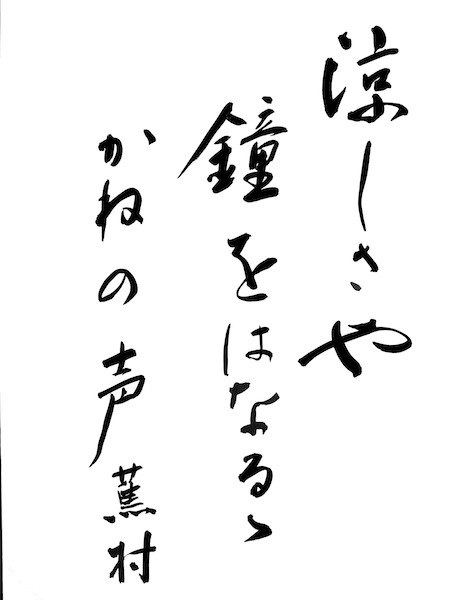 涼しさや
鐘をはなるゝ
かねの声 蕪村